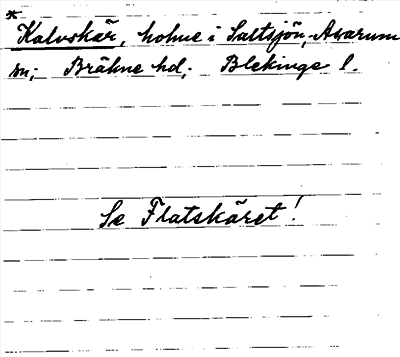 *
Kalvskär, holme i Saltsjön, Asarums
sn; Bräkne hd; Blekinge l.
Se Flatskäret!